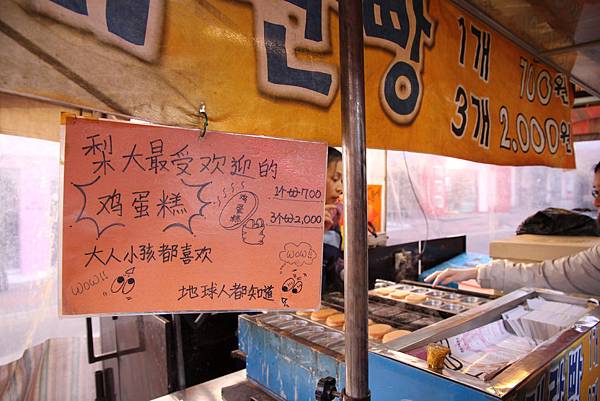 빵
1개 700원
3개 2.000원
梨大最受欢迎的
鸡蛋糕
鸡蛋糕
1个 700
3个 2,000
大人小孩都喜欢
WOW!!
WOW!!
地球人都知道